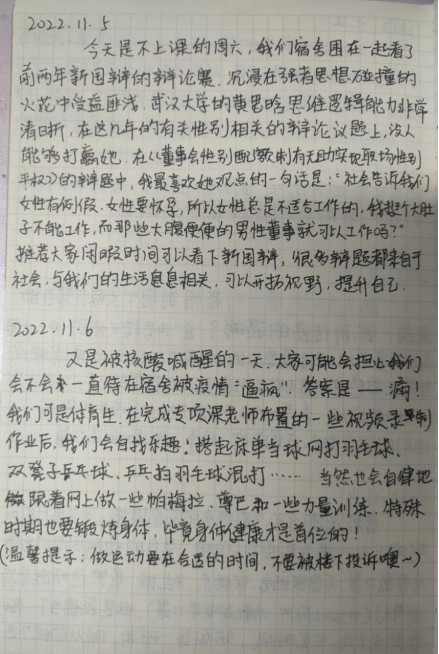 2022.11.5
今天是不上课的周六，我们宿舍围在一起看了
前两年新国辩的辩论赛，沉浸在强者思想碰撞的
火花中受益匪浅。武汉大学的黄思晗思维逻辑能力非常
清晰，在这几年的有关性别相关的辩论议题上，没人
能够打赢她。在《董事会性别配额制有无助实现职场性别
平权》的辩题中，我最喜欢她观点的一句话是："社会告诉我们
女性有例假，女性要怀孕，所以女性总是不适合工作的，我挺个大肚
子不能工作，而那些大腹便便的男性董事就可以工作吗？"
推荐大家闲暇时间可以看下新国辩，很多辩题都来自于
社会，与我们的生活息息相关，可以开拓视野，提升自己.
2022.11.6
又是被核酸喊醒的一天.大家可能会担心我们
会不会一直待在宿舍被疫情"逼疯".答案是——疯！
我们可是体育生.在完成专项课老师布置的一些视频录制
作业后，我们会自找乐趣.搭起床单当球网打羽毛球、
双凳子乒乓球、乒乓拍羽毛球混打…… 当然也会自律地
跟着网上做一些帕梅拉、尊巴和一些力量训练.特殊
时期也要锻炼身体，毕竟身体健康才是首位的！
(温馨提示：做运动要在合适的时间，不要被楼下投诉噢~)